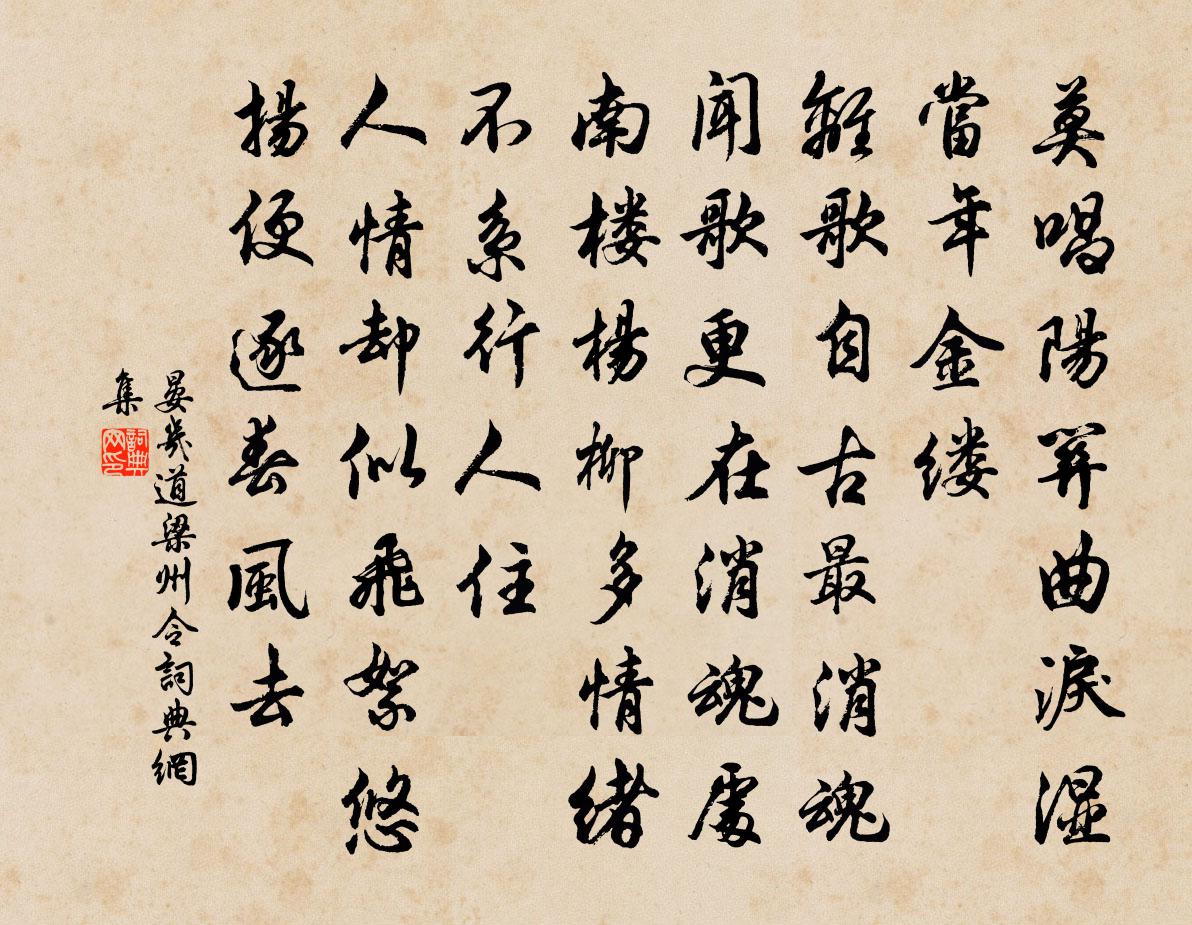 莫唱陽關曲淚湿
當年金缕
離歌自古最消魂
聞歌更在消魂處
南楼楊柳多情緒
不系行人住
人情却似飛絮悠
揚便逐春風去
晏幾道梁州令詞典網
集
詞典
网印